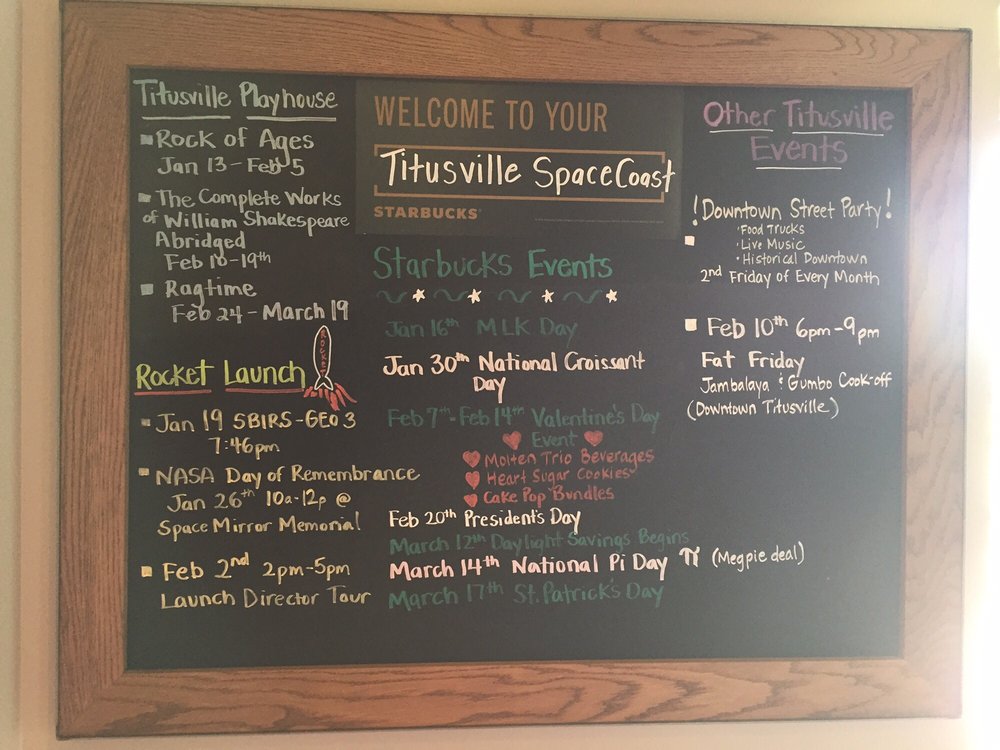 Titusville Playhouse
Rock of Ages
Jan 13 - Feb 5
The Complete Works
of William Shakespeare
Abridged
Feb 10-19th
Ragtime
Feb 24 - March 19
Rocket Launch
ROCKET
Jan 19 SBIRS-GEO 3
7:46pm
NASA Day of Remembrance
Jan 26th 10a-12p @
Space Mirror Memorial
Feb 2nd 2pm-5pm
Launch Director Tour
WELCOME TO YOUR
Titusville SpaceCoast
STARBUCKS
Starbucks Events
Jan 16th MLK Day
Jan 30th National Croissant
Day
Feb 7th - Feb 14th Valentine's Day
Event
Molten Trio Beverages
Heart Sugar Cookies
Cake Pop Bundles
Feb 20th President's Day
March 12th Daylight Savings Begins
March 14th National Pi Day π (Megpie deal)
March 17th St. Patrick's Day
Other Titusville
Events
! Downtown Street Party !
· Food Trucks
· Live Music
· Historical Downtown
2nd Friday of Every Month
Feb 10th 6pm-9pm
Fat Friday
Jambalaya & Gumbo Cook-off
(Downtown Titusville)